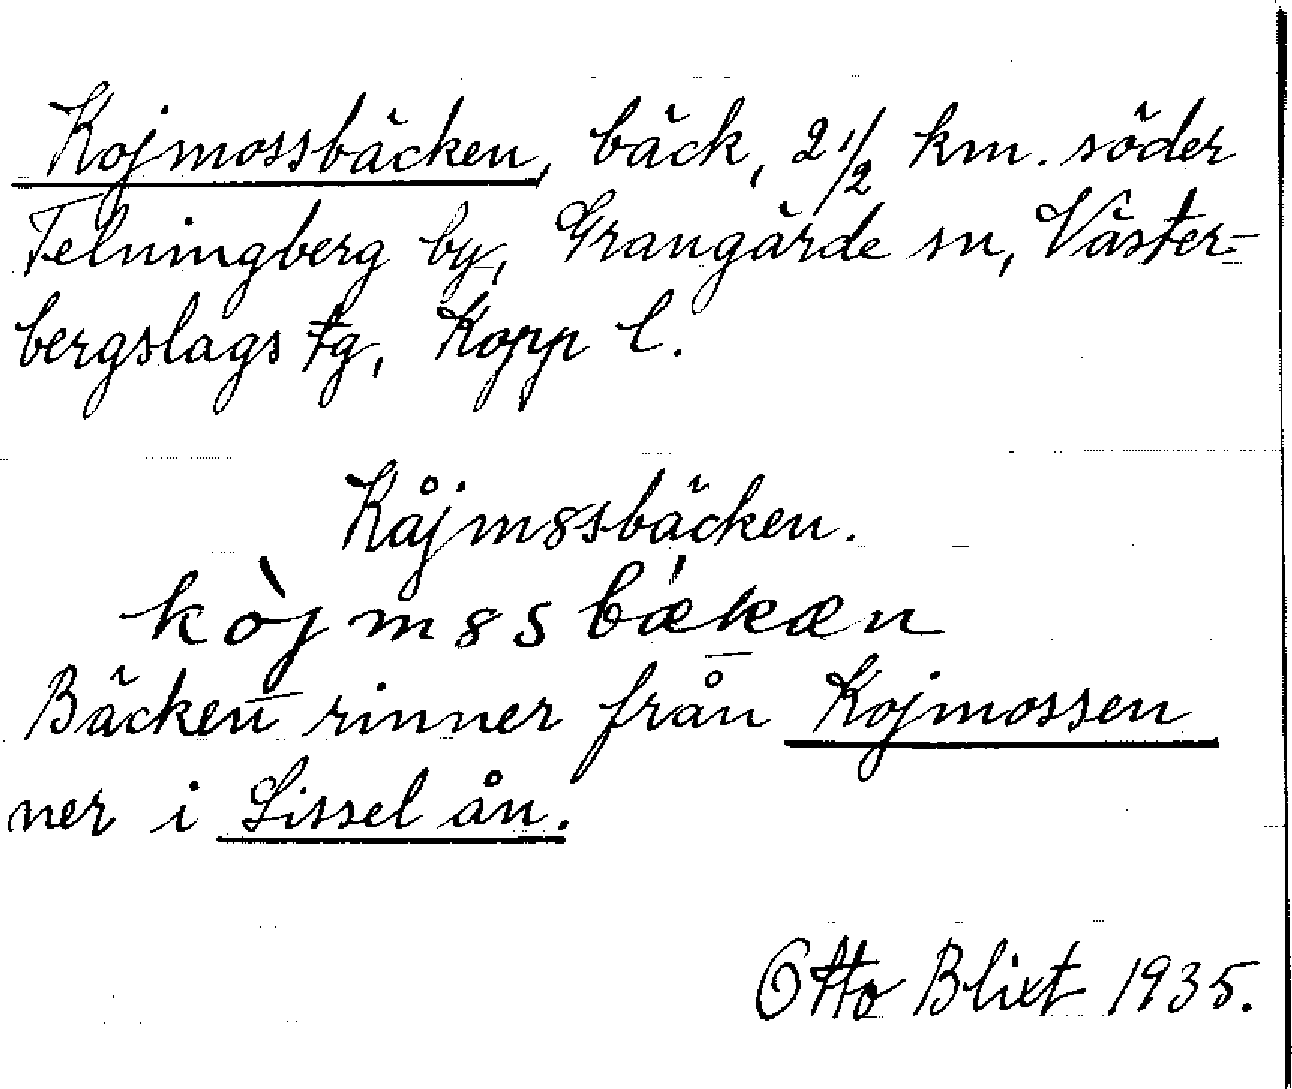 Kojmossbäcken, bäck, 2 1/2 km. söder
Telningberg by, Grangärde sn, Väster-
bergslags tg, Kopp l.
Kåjm8ssbäcken.
kòjm8sbækæn
Bäcken rinner från Kojmossen
ner i Lissel ån.
Otto Blixt 1935.